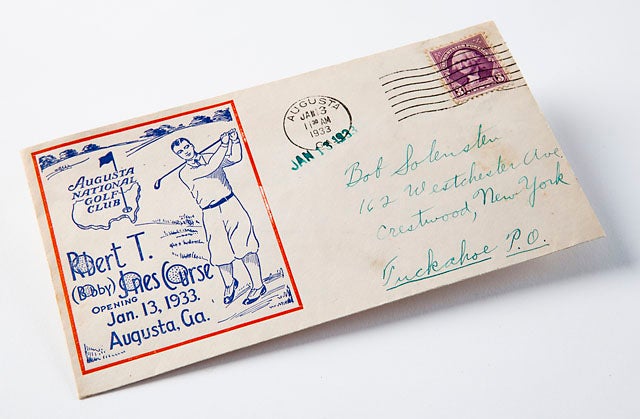 AUGUSTA
NATIONAL
GOLF
CLUB
Robert T.
(Bobby) Jones Course
OPENING
Jan. 13, 1933.
Augusta, Ga.
AUGUSTA
JAN 13
11 30 AM
1933
JAN 13 1933
3
Bob Solensten
162 Westchester Ave
Crestwood, New York
Tuckahoe P.O.